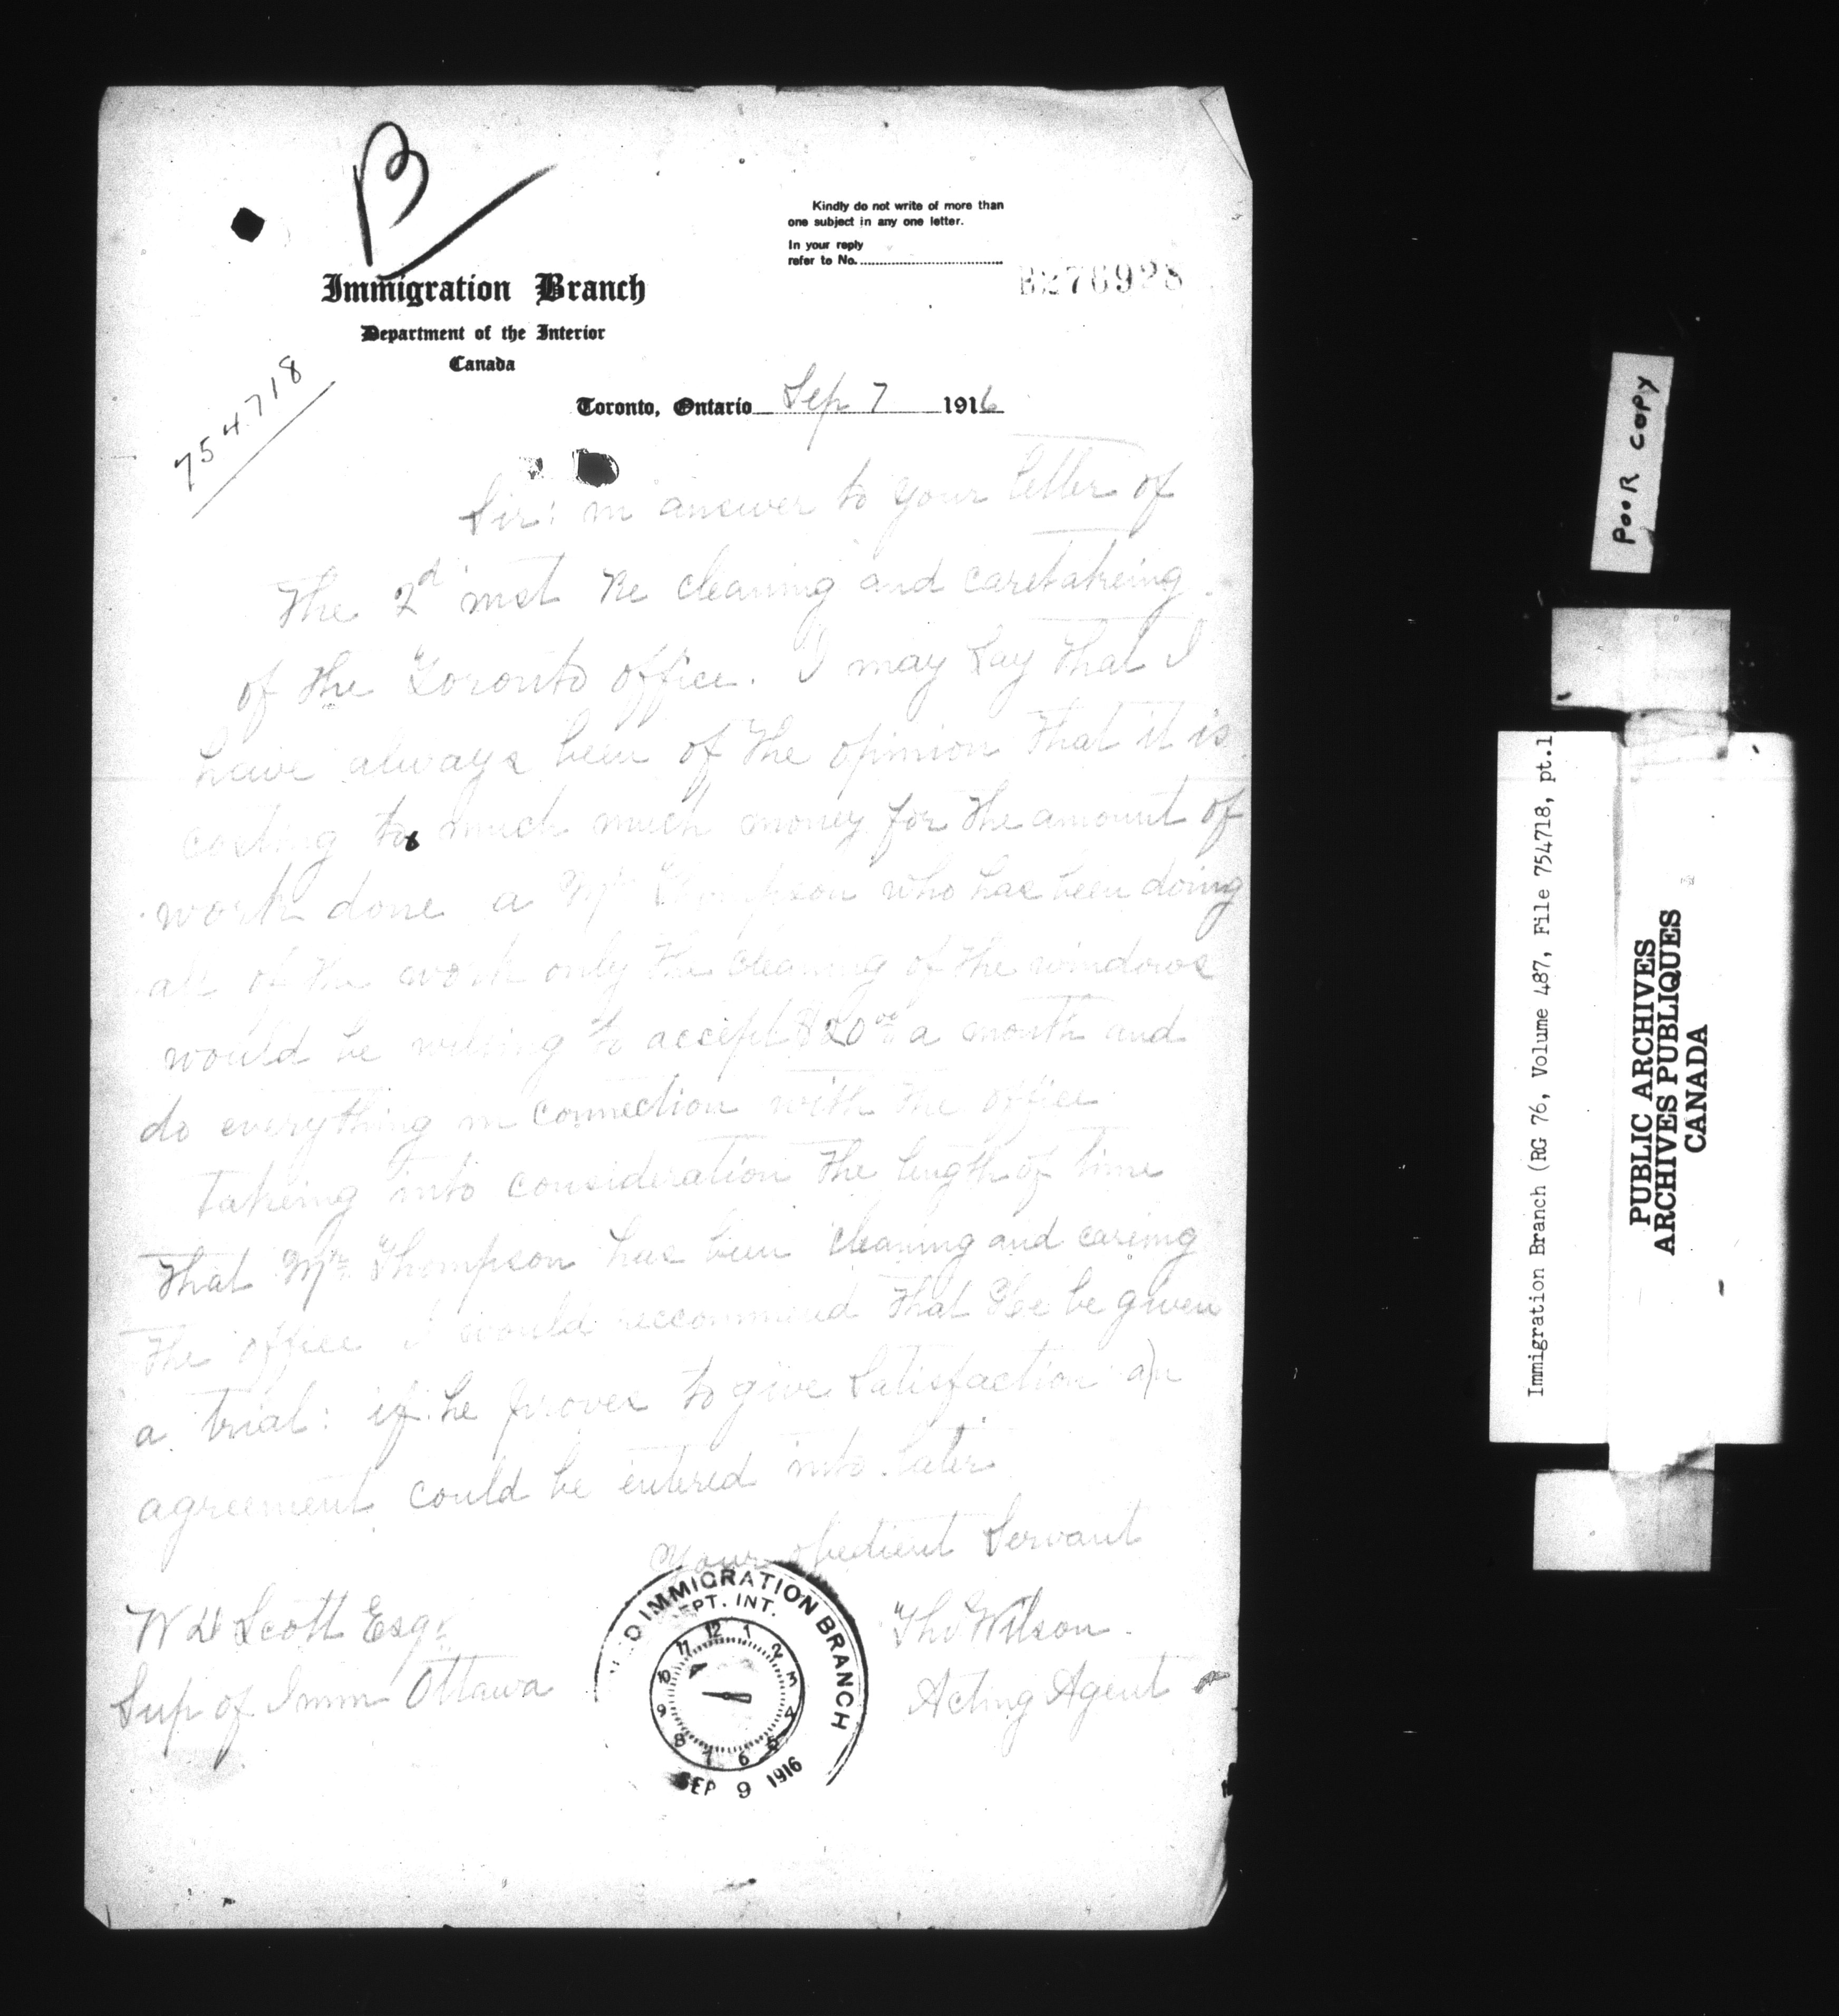 B
Kindly do not write of more than
one subject in any one letter.
In your reply
refer to No.
B276928
Immigration Branch
Department of the Interior
Canada
754718
Toronto, Ontario Sep 7 1916
Sir: in answer to your letter of
the 2d inst Re cleaning and caretakeing
of the Toronto office. I may say that I
have always been of the opinion that it is
costing to much much money for the amount of
work done a Mr Thompson who has been doing
all of the work only the cleaning of the windows
would be willing to accept $20 00 a month and
do everything in connection with the office
takeing into consideration the length of time
that Mr Thompson has been cleaning and careing
the office I would reccommend that he be given
a trial: if he proves to give satisfaction an
agreement could be entered into later
Your obedient Servant
W D Scott Esq.
Sup of Imm Ottawa
Tho Wilson
Acting Agent
IMMIGRATION BRANCH
DEPT. INT.
12 1 2 3 4 5 6 7 8 9 10 11
SEP 9 1916
POOR COPY
Immigration Branch (RG 76, Volume 487, File 754718, pt.1
PUBLIC ARCHIVES
ARCHIVES PUBLIQUES
CANADA